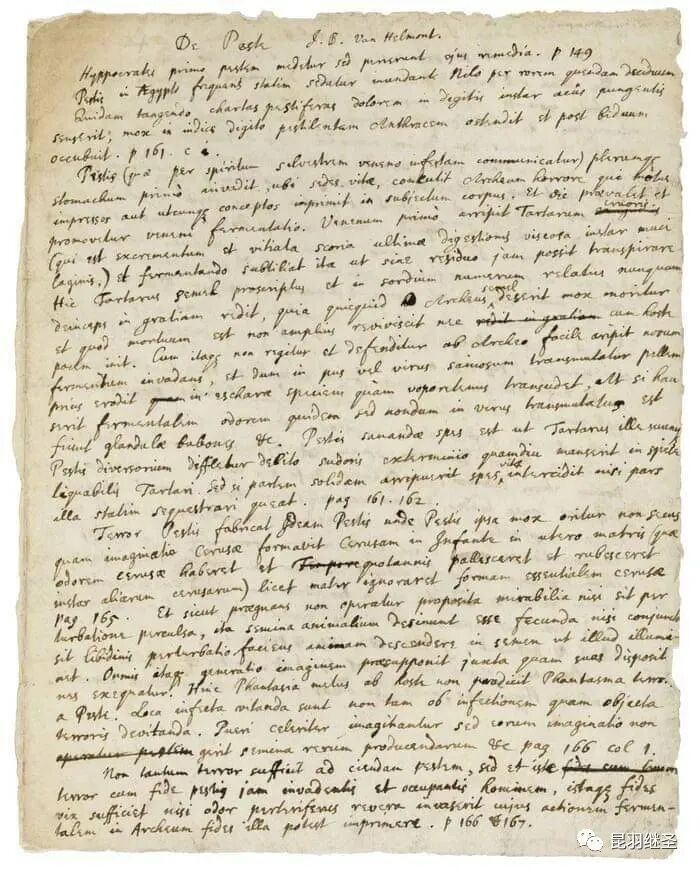 De Peste J. B. Van Helmont.
Hyppocrates primo pestem medetur sed perierunt ejus remedia. p 149
Pestis in Ægypto frequens statim sedatur inundante Nilo per rorem quendam deciduum
Quidam tangendo chartas pestiferas dolorem in digitis instar acûs pungentis
senserit; mox in indice digito pestilentum Anthracem ostendit et post biduum
occubuit. p 161. c
Pestis (quæ per spiritum silvestrem veneno infectam communicatur) plerumqz
stomachum primò invadit, ubi sedes vitæ, Archeum horrore, qui motus
impressos aut utcunqz conceptos imprimit in subjectum corpus. Et sic prævalet et
promovetur veneni fermentatio. Venenum primo arripit Tartarum
(qui est excrementum et vitiata scoria ultimæ digestionis viscosa instar muci
laginis,) et fermentando subtiliat ita ut sine residuo jam possit transpirare
Hic Tartarus semel proscriptus et in sordium numerum relatus nunquam
deinceps in gratiam redit, quia quicquid Archeus semel deserit mox moritur
et quod mortuum est non amplius reviviscit nec redit in gratiam cum hoste
pacem init. Cum itaqz non regitur et defenditur ab Archeo facile aripit novum
fermentum invadens, et dum in pus vel virus saniosum transmutatur pellem
prius erodit in escharæ speciem quam transudet, At si hau
serit fermentalem odorem quidem sed nondum in virus transmutatus est
fiunt glandulæ bubones &c. Pestis sanandæ spes est ut Tartarus ille
Pestis diversorium diffletur debito sudoris exterminio quamdiu manserit in specie
liquabilis Tartari. Sed si partem solidam arripuerit spes vitæ intercidit nisi pars
illa statim sequestrari queat. pag 161. 162.
Terror Pestis fabricat Ideam Pestis unde Pestis ipsa mox oritur non secus
quam imaginatio Cerasæ formavit Cerasam in Infante in utero matris (quæ
odorem cerasæ haberet et quotannis pallesceret et rubesceret
instar aliarum cerasarum) licet mater ignoraret formam essentialem cerasæ
pag 165. Et sicut prægnans non operatur proposita mirabilia nisi sit per
turbatione perculsa, ita semina animalium desinunt esse fecunda nisi conjuncta
sit libidinis perturbatio faciens animam descendere in semen ut illud illumi
net. Omnis itaqz generatio imaginem præsupponit juxta quam suas disposit
nes exequatur. Hinc Phantasia metus ab hoste non producit Phantasma terroris
a Peste. Loca infecta vitanda sunt non tam ob infectionem quam objecta
terroris devitanda. Pueri celeriter imaginantur sed eorum imaginatio non
operatur pestem gerit semina rerum producendarum &c pag 166 col 1.
Non tantum terror sufficit ad ciendam pestem, sed et iste
terror cum fide pestis jam invadentis et occupantis hominem, istaqz fides
vix sufficiet nisi odor pertenfenes revera invaserit cujus actionem fermen-
talem in Archeum fides illa potest imprimere. p 166 & 167.
昆羽继圣